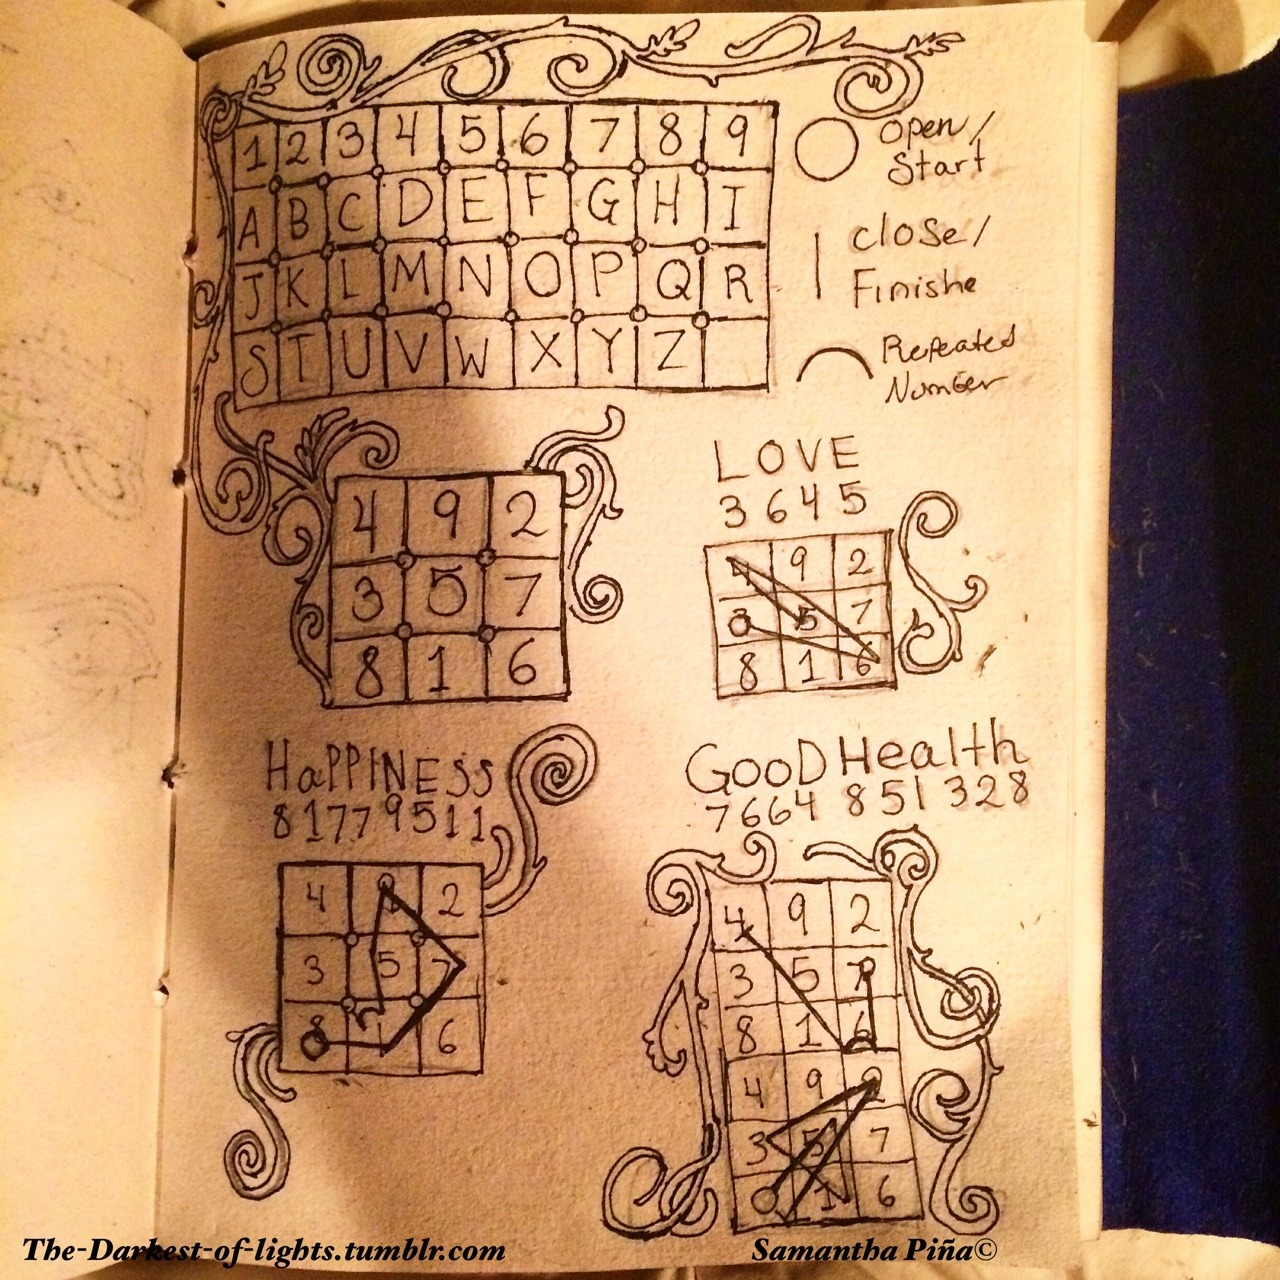 1 2 3 4 5 6 7 8 9
A B C D E F G H I
J K L M N O P Q R
S T U V W X Y Z
Open/
Start
Close/
Finishe
Repeated
Number
4 9 2
3 5 7
8 1 6
LOVE
3645
4 9 2
3 5 7
8 1 6
HaPPINESS
81779511
4 9 2
3 5 7
8 1 6
GooD Health
7664 851328
4 9 2
3 5 7
8 1 6
4 9 2
3 5 7
1 6
The-Darkest-of-lights.tumblr.com
Samantha Piña©